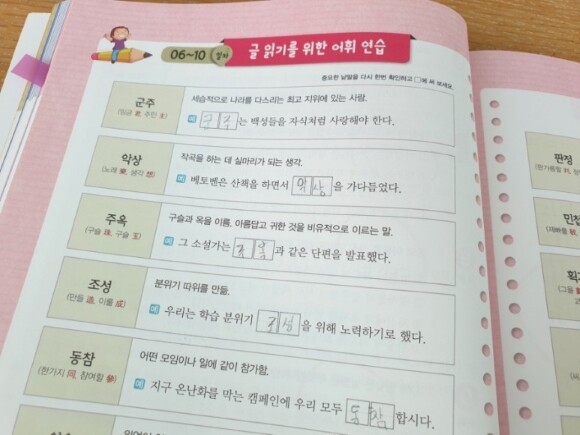 06~10 일차
글 읽기를 위한 어휘 연습
중요한 낱말을 다시 한번 확인하고 □에 써 보세요.
군주
(임금 君, 주인 主)
세습적으로 나라를 다스리는 최고 지위에 있는 사람.
예 군주는 백성들을 자식처럼 사랑해야 한다.
악상
(노래 樂, 생각 想)
작곡을 하는 데 실마리가 되는 생각.
예 베토벤은 산책을 하면서 악상을 가다듬었다.
주옥
(구슬 珠, 구슬 玉)
구슬과 옥을 이름. 아름답고 귀한 것을 비유적으로 이르는 말.
예 그 소설가는 주옥과 같은 단편을 발표했다.
조성
(만들 造, 이룰 成)
분위기 따위를 만듦.
예 우리는 학습 분위기 조성을 위해 노력하기로 했다.
동참
(한가지 同, 참여할 參)
어떤 모임이나 일에 같이 참가함.
예 지구 온난화를 막는 캠페인에 우리 모두 동참합시다.
판정